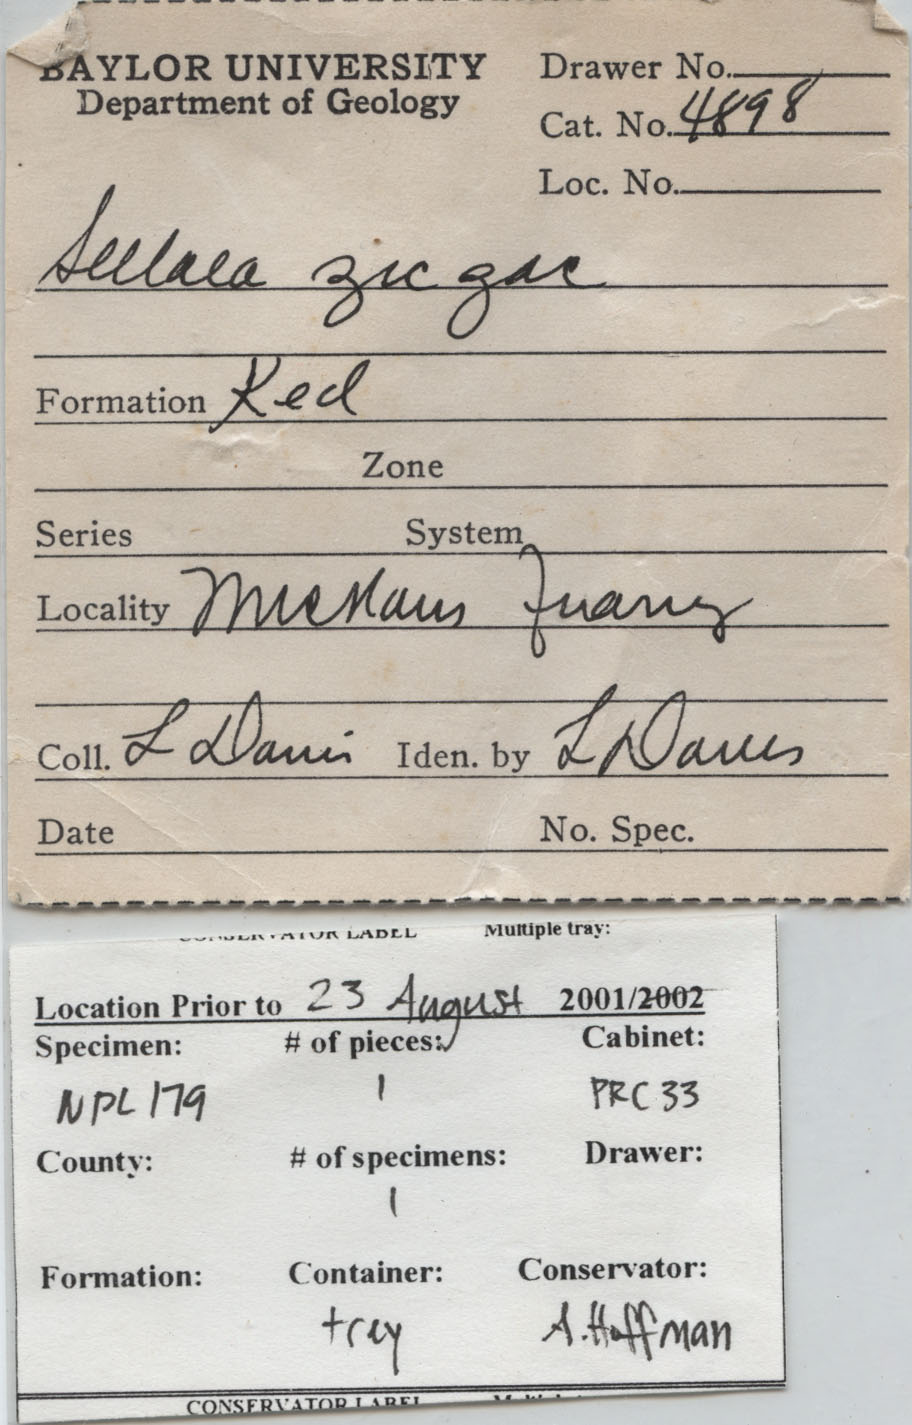 BAYLOR UNIVERSITY
Department of Geology
Drawer No.
Cat. No. 4898
Loc. No.
zic zac
Formation Ked
Zone
Series System
Locality Juarez
Coll. L Davis Iden. by L Davis
Date No. Spec.
CONSERVATOR LABEL Multiple tray:
Location Prior to 23 August 2001/2002
Specimen: # of pieces: Cabinet:
NPL 179 1 PRC 33
County: # of specimens: Drawer:
1
Formation: Container: Conservator:
tray A. Hoffman
CONSERVATOR LABEL